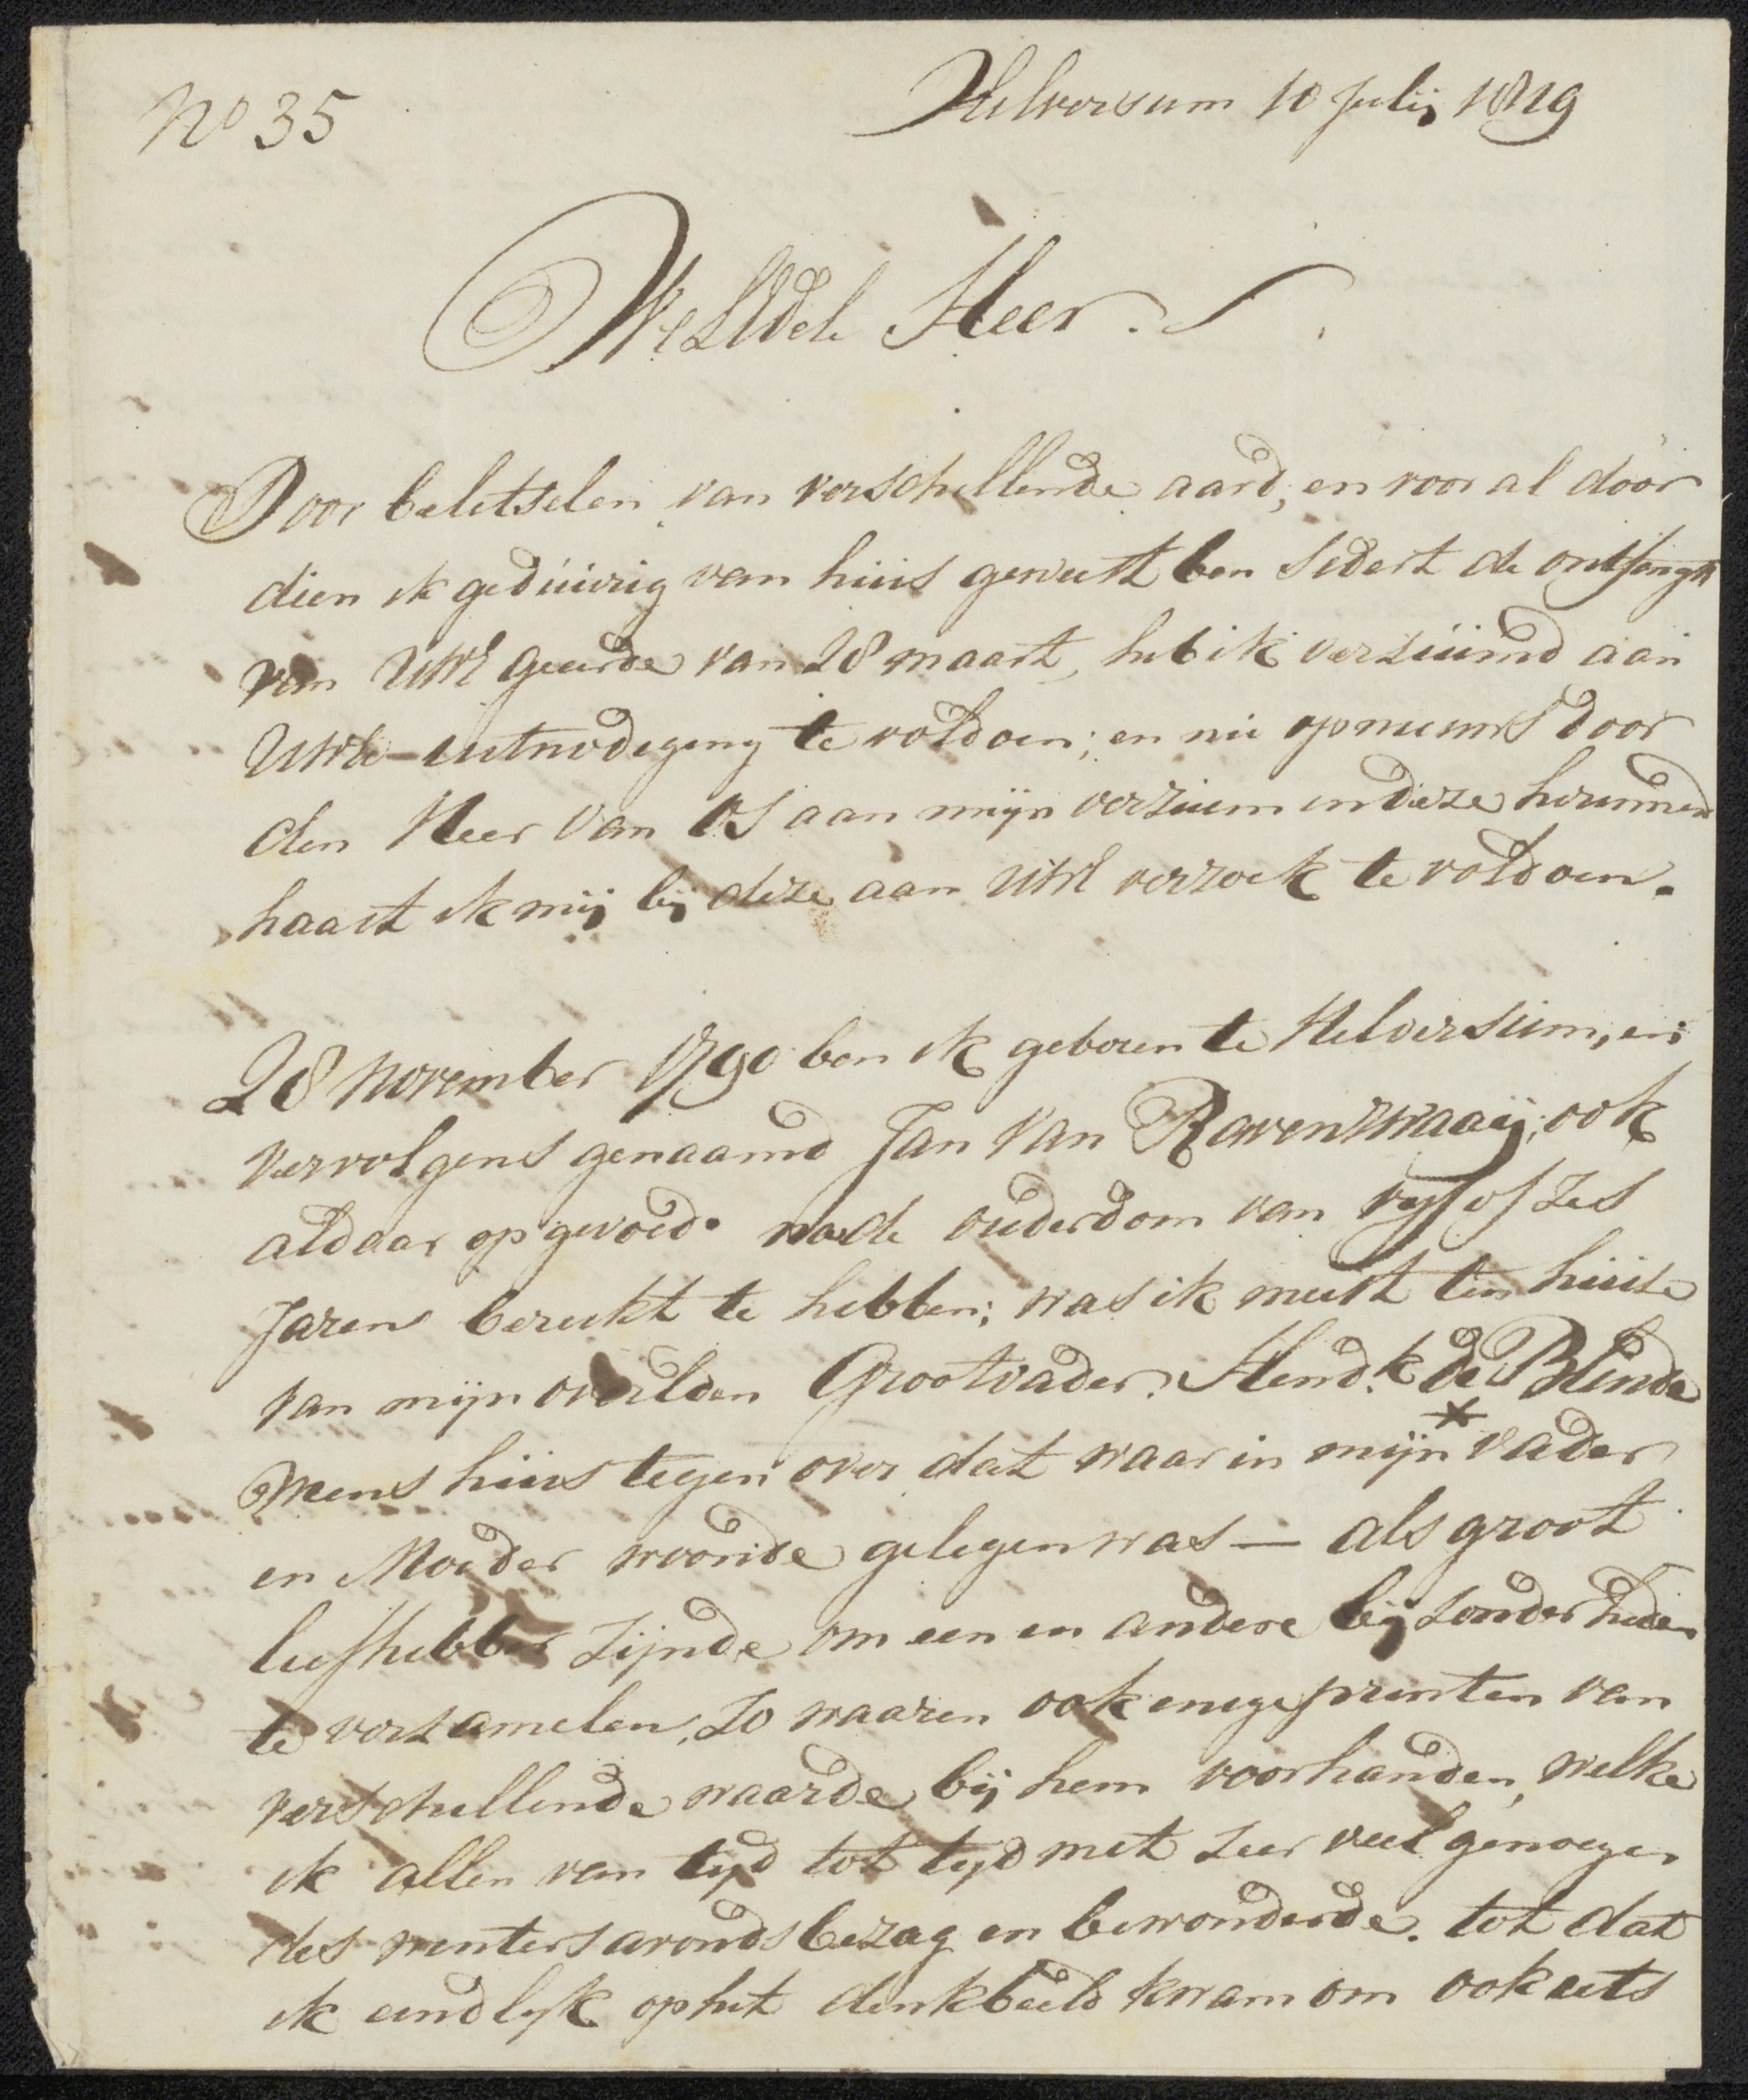 No 35
Hilversum 10 Julij 1819
WelEdele Heer.
Door beletselen van verschillende aard, en voor al door
dien ik geduurig van huis geweest ben sedert de ontfangst
van UwE geeerde van 28 maart, heb ik verzuimd aan
UwE uitnodiging te voldoen; en nu opnieuws door
den Heer van OS aan mijn verzuim in deze herinnerd
haast ik mij bij deze aan UwE verzoek te voldoen.
28 November 1790 ben ik geboren te Hilversum, en
vervolgens genaamd Jan van Ravenzwaaij; ook
aldaar opgevoed. na de ouderdom van vijf of zes
Jaren bereikt te hebben; was ik meest ten huise
van mijn overleden Grootvader. Hend.k de Blinde
wiens huis tegen over dat waar in mijn * vader
en Moeder woonde gelegen was — als groot
liefhebber zijnde om een en andere bijzonderheden
te verzamelen, zo waaren ook enige printen van
verschillende waarde bij hem voorhanden, welke
ik allen van tijd tot tijd met zeer veel genoegen
des winters avonds bezag en bewonderde. tot dat
ik eindlijk op het denkbeeld kwam om ook iets